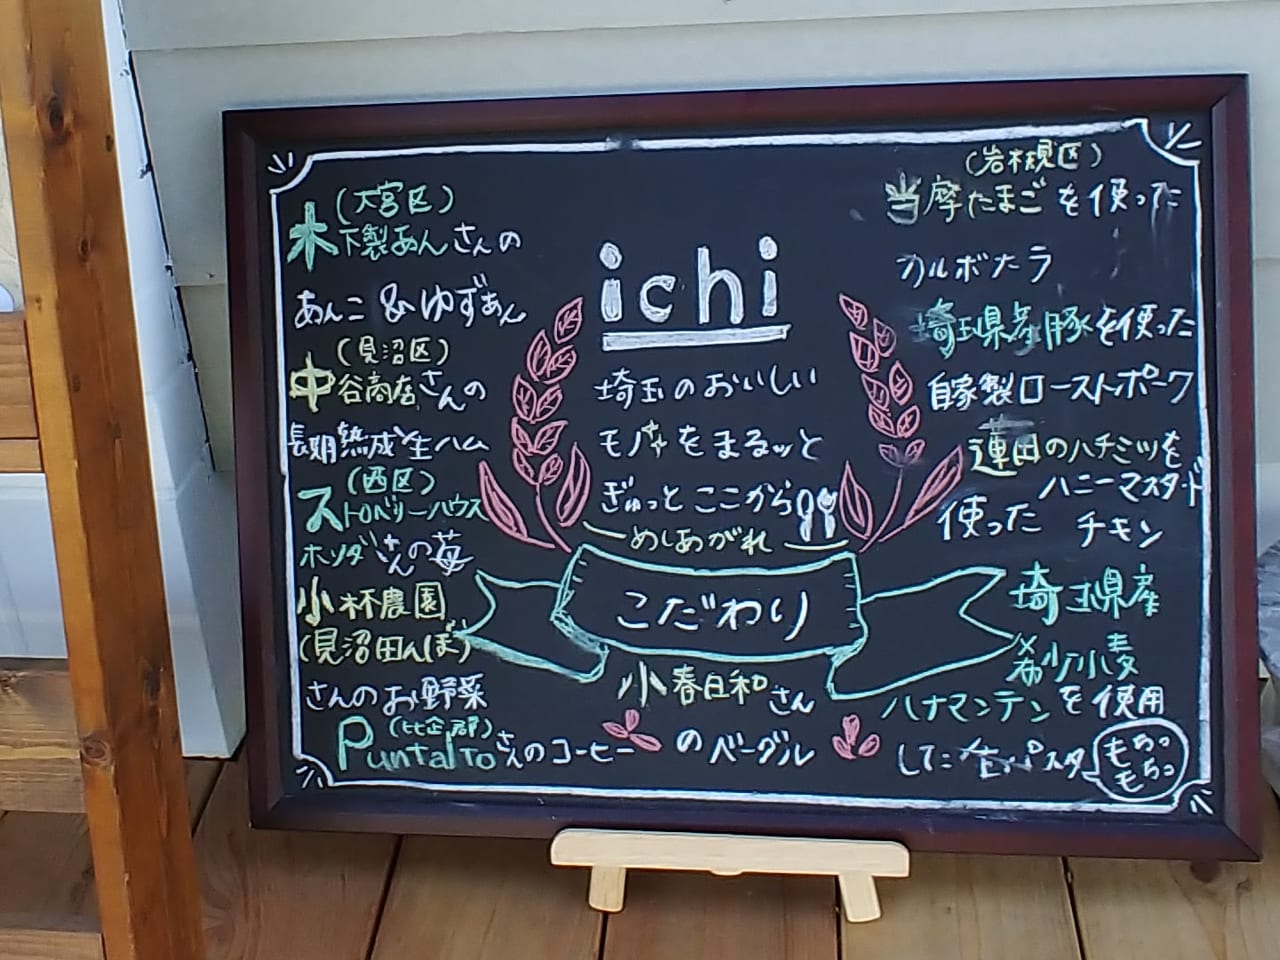 (大宮区)
木下製あんさんの
あんこ&ゆずあん
(見沼区)
中谷商店さんの
長期熟成生ハム
(西区)
ストロベリーハウス
ホソダさんの苺
小林農園
(見沼田んぼ)
さんのお野菜
(比企郡)
Puntaltoさんのコーヒー
ichi
埼玉のおいしい
モノをまるッと
ぎゅっとここから
めしあがれ
こだわり
小春日和さん
のベーグル
(岩槻区)
当摩たまごを使った
カルボナラ
埼玉県産豚を使った
自家製ローストポーク
蓮田のハチミツを
使った
ハニーマスタード
チキン
埼玉県産
希少小麦
ハナマンテンを使用
した生パスタ
もちっ
もちっ